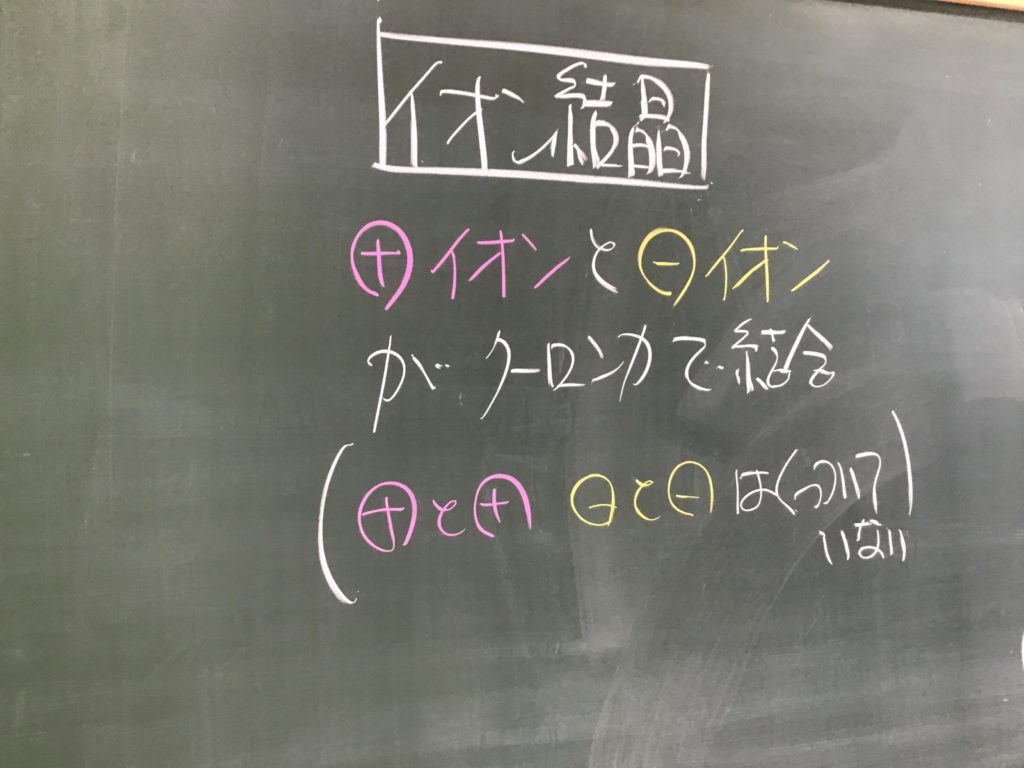 イオン結晶
⊕イオンと⊖イオン
がクーロン力で結合
(⊕と⊕ ⊖と⊖はくっついて
いない)